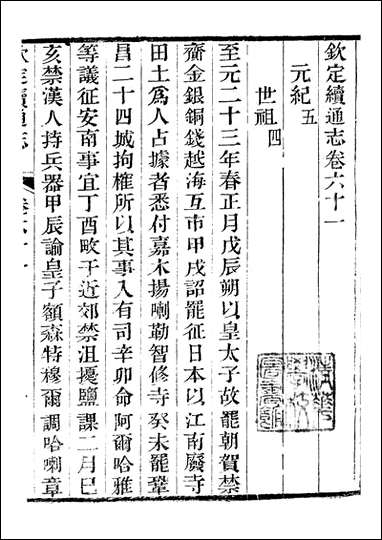 欽定續通志卷六十一
元紀五
世祖四
至元二十三年春正月戊辰朔以皇太子故罷朝賀禁
齎金銀銅錢越海互市甲戌詔罷征日本以江南廢寺
田土為人占據者悉付嘉木揚喇勒智修寺癸未罷鞏
昌二十四城拘榷所以其事入有司辛卯命阿爾哈雅
等議征安南事宜丁酉畋于近郊禁沮擾鹽課二月巳
亥禁漢人持兵器甲辰諭皇子額森特穆爾調哈喇章